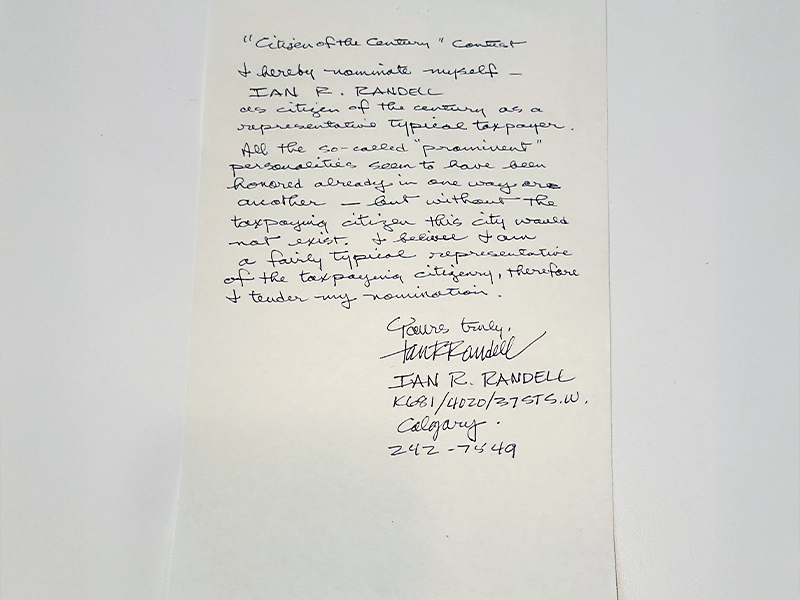 "Citizen of the Century" Contest
I hereby nominate myself –
IAN R. RANDELL
as citizen of the century as a
representative typical taxpayer.
All the so-called "prominent"
personalities seem to have been
honored already in one way or
another – but without the
taxpaying citizen this city would
not exist. I believe I am
a fairly typical representative
of the taxpaying citizenry, therefore
I tender my nomination.
Yours truly,
Ian R Randell
IAN R. RANDELL
K681/4020/37 ST S.W.
Calgary.
242-7549